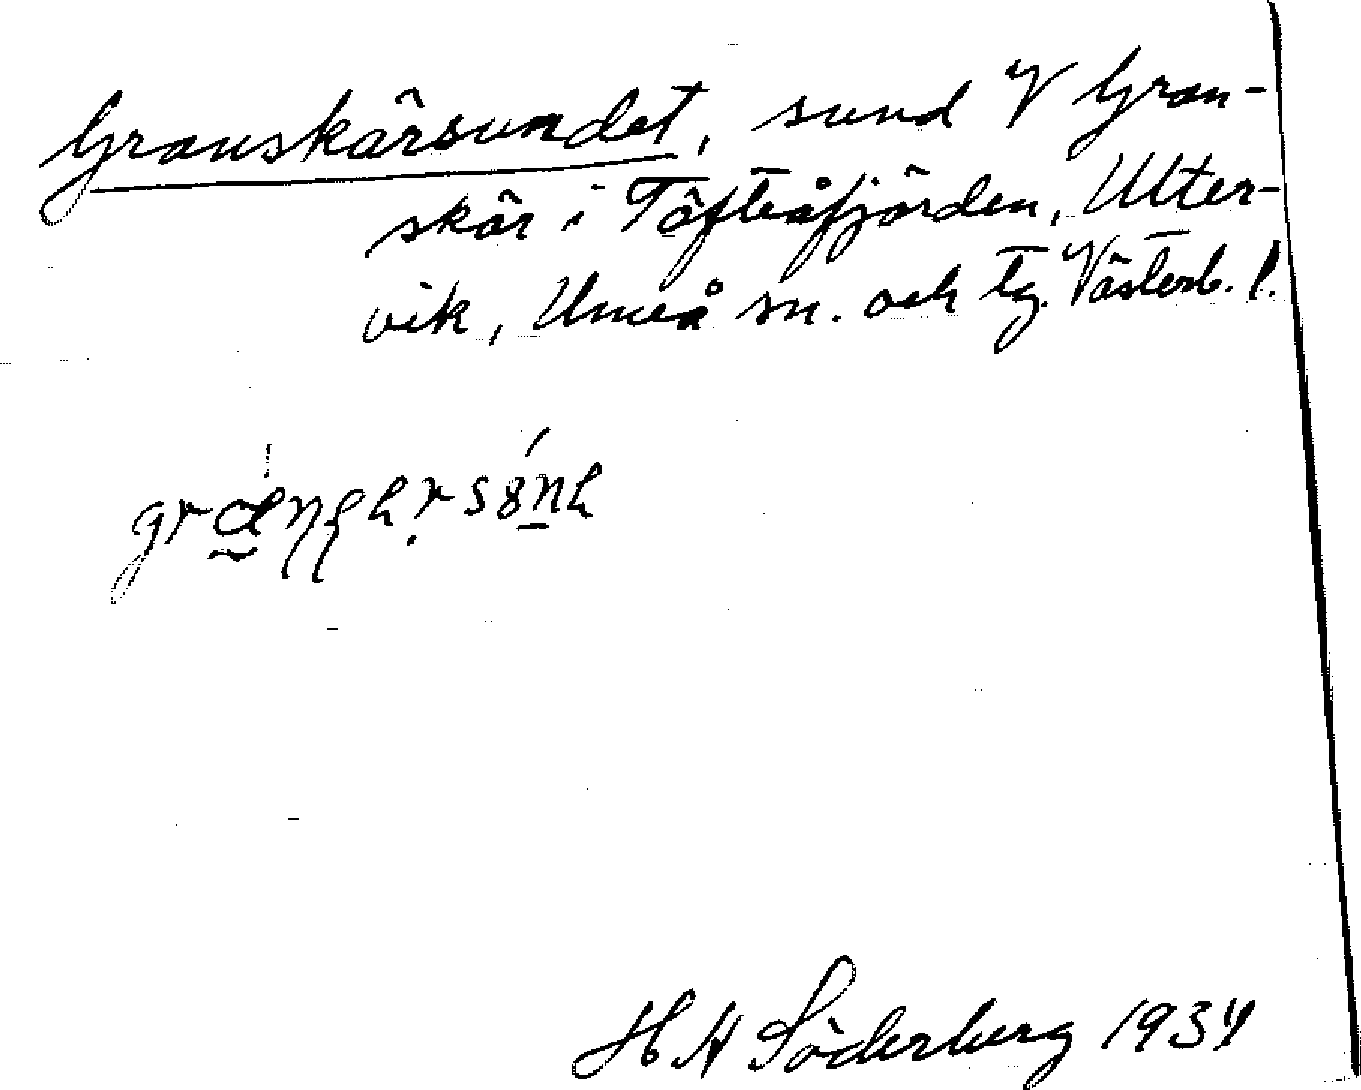 Granskärsundet, sund V Gran-
skär i Täfteåfjärden, Ulter-
vik, Umeå sn. och tg. Västerb. l.
H A Söderberg 1934